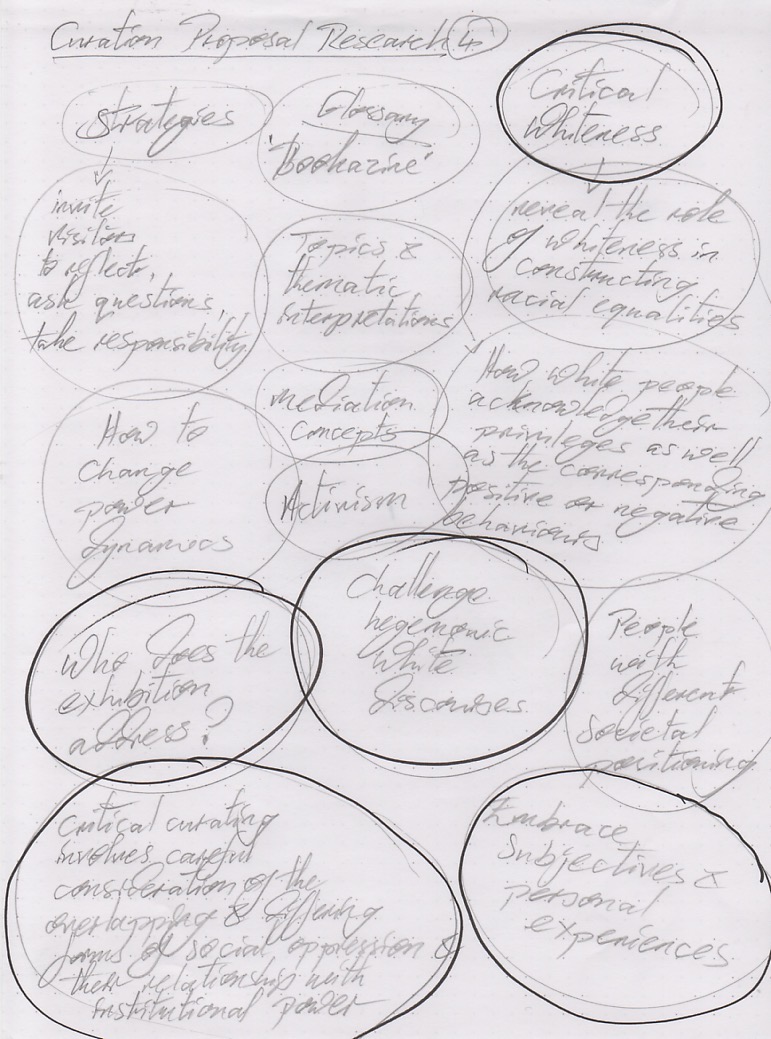 Curation Proposal Research 4
Strategies
Glossary
"Bookazine"
Critical
Whiteness
invite
visitors
to reflect,
ask questions,
take responsibility
Topics &
thematic
interpretations
reveal the role
of whiteness in
constructing
racial equalities
mediation
concepts
How white people
acknowledge their
privileges as well
as the corresponding
positive or negative
behaviours
How to
change
power
dynamics
Activism
Who does the
exhibition
address?
Challenge
hegemonic
white
discourses
People
with
different
societal
positioning
Critical curating
involves careful
consideration of the
overlapping & differing
forms of social oppression &
their relationship with
institutional power
Embrace
subjectives &
personal
experiences